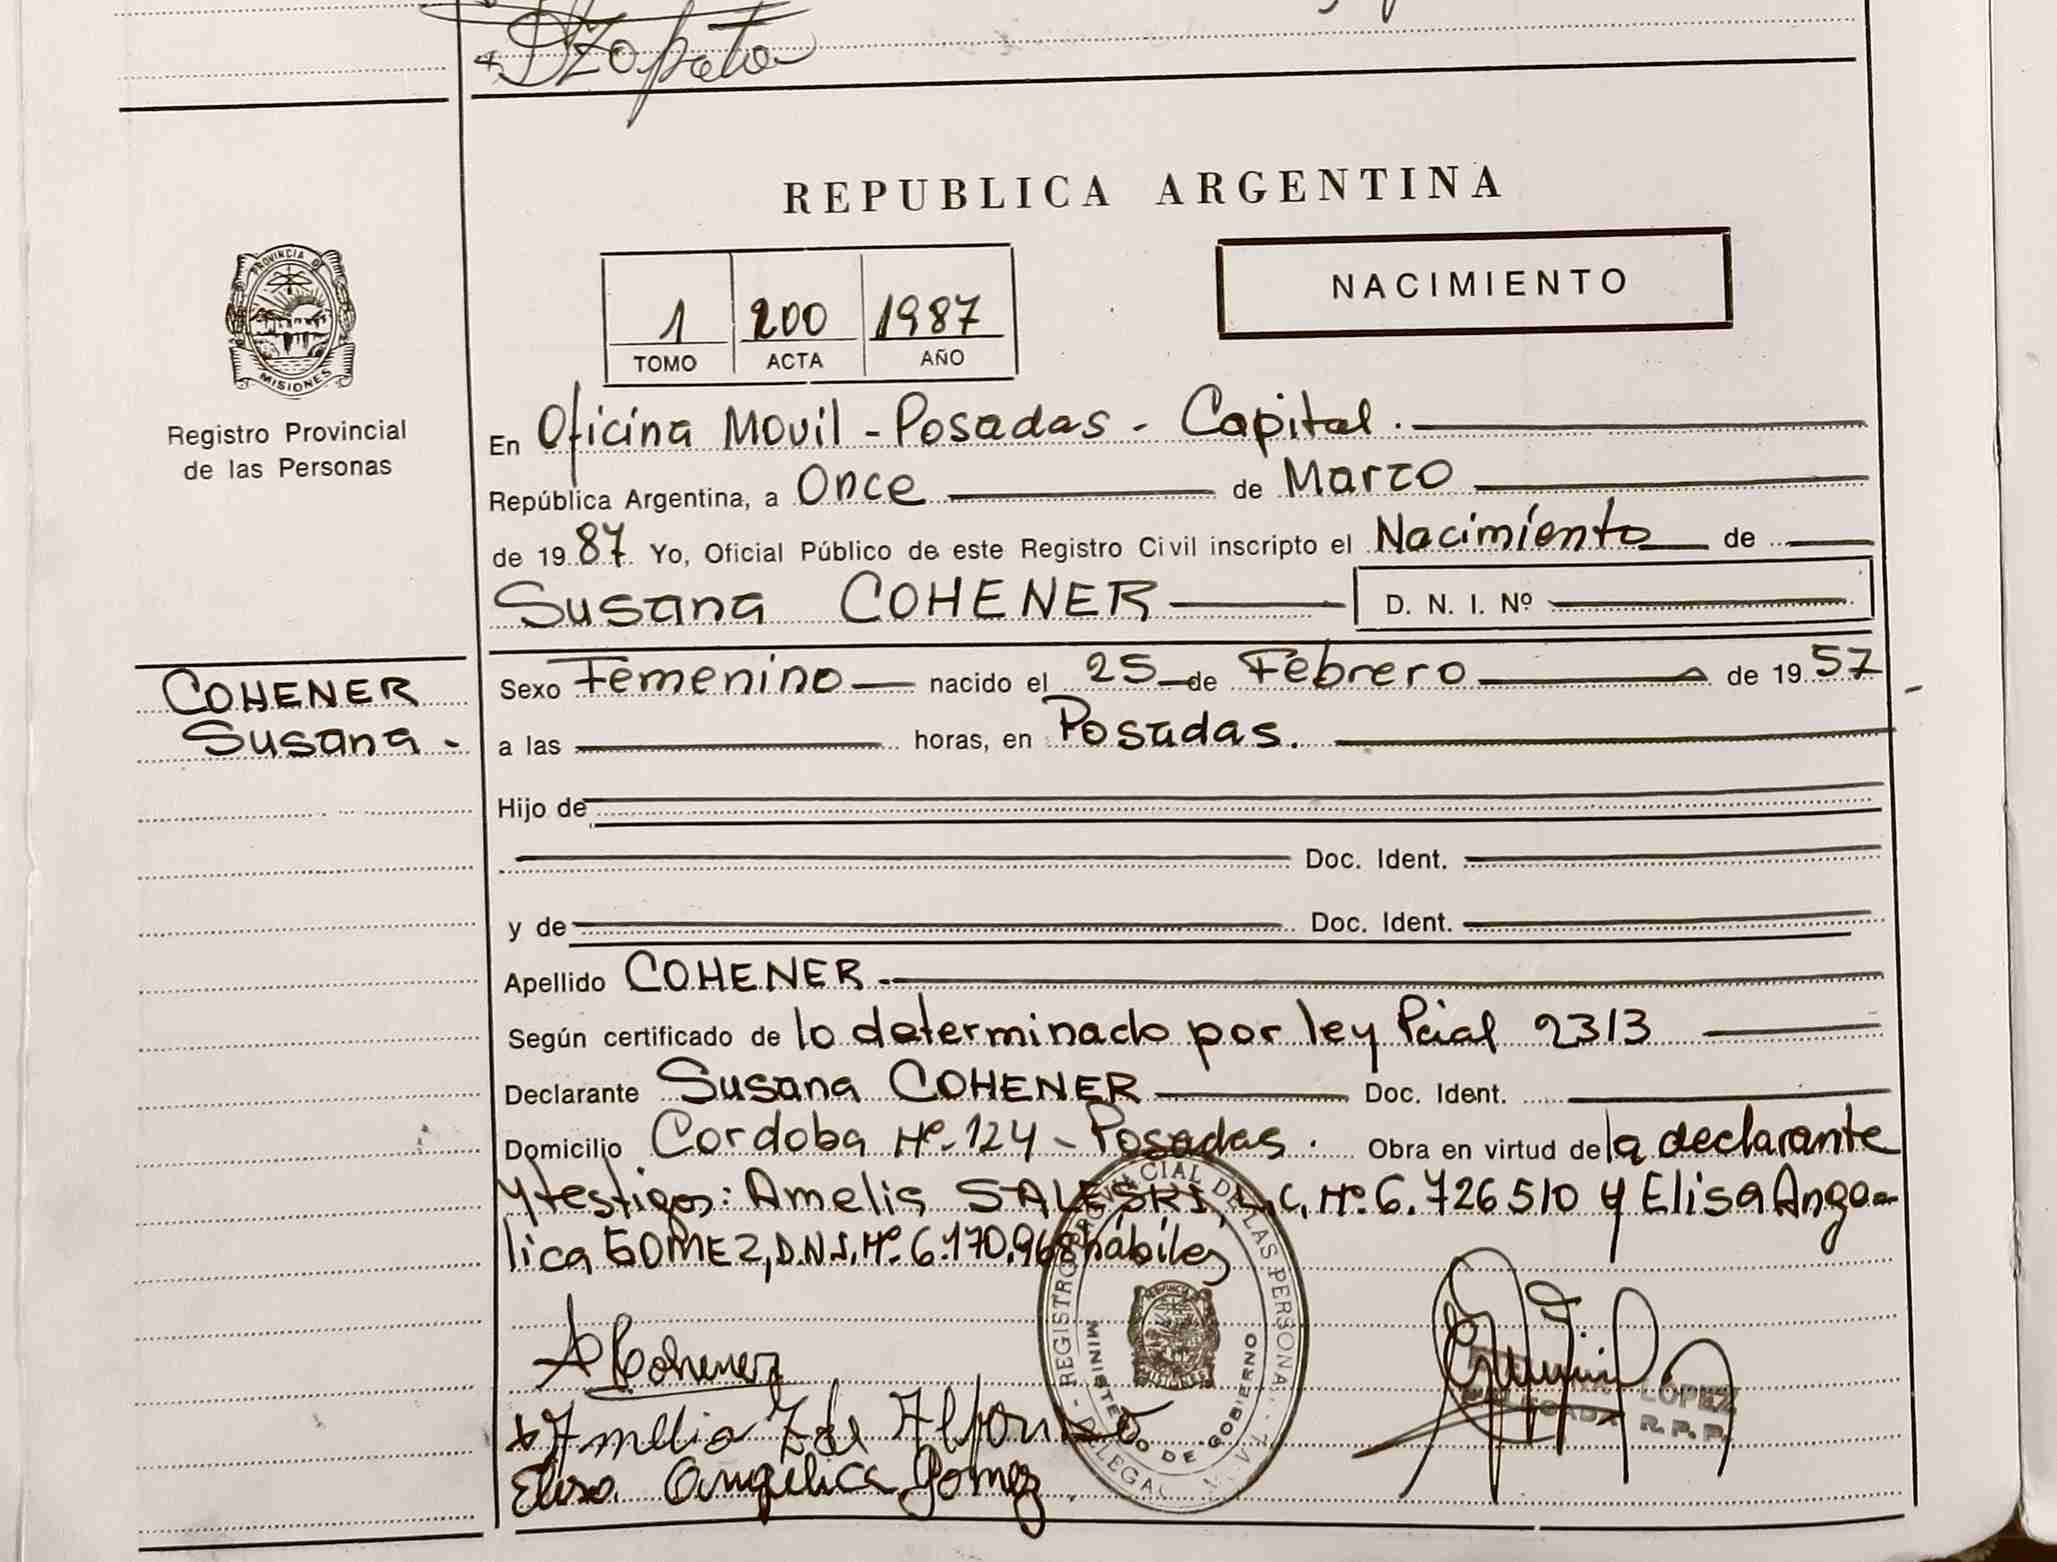 DZapata
REPUBLICA ARGENTINA
PROVINCIA DE
MISIONES
NACIMIENTO
1 200 1987
TOMO ACTA AÑO
Registro Provincial
de las Personas
En Oficina Movil - Posadas - Capital.
República Argentina, a Once de Marzo
de 1987 Yo, Oficial Público de este Registro Civil inscripto el Nacimiento de
Susana COHENER D. N. I. Nº
COHENER
Susana.
Sexo Femenino nacido el 25 de Febrero de 1957
a las horas, en Posadas.
Hijo de
Doc. Ident.
y de Doc. Ident.
Apellido COHENER
Según certificado de lo determinado por ley Pcial 2313
Declarante Susana COHENER Doc. Ident.
Domicilio Cordoba Nº 124 - Posadas. Obra en virtud de la declarante
y testigos: Amelia SALESKI, L.C. Nº 6.726510 y Elisa Ange-
lica GOMEZ, D.N.I. Nº 6.170.968 hábiles
Cohener
Amelia Z de Alfonzo
Elisa Angélica Gomez
REGISTRO PROVINCIAL DE LAS PERSONAS
MINISTERIO DE GOBIERNO
LOPEZ
DELEGADA R.P.P.